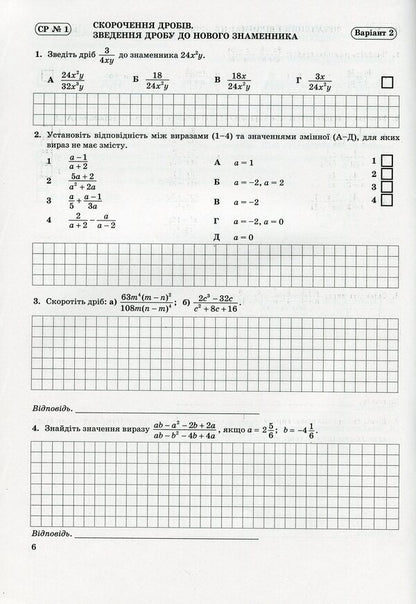 СР № 1
СКОРОЧЕННЯ ДРОБІВ.
ЗВЕДЕННЯ ДРОБУ ДО НОВОГО ЗНАМЕННИКА
Варіант 2
1. Зведіть дріб 3/4xy до знаменника 24x²y.
А 24x²y/32x³y Б 18/24x²y В 18x/24x²y Г 3x/24x²y
2. Установіть відповідність між виразами (1–4) та значеннями змінної (А–Д), для яких
вираз не має змісту.
1 (a − 1)/(a + 2) А a = 1 1
2 (5a + 2)/(a² + 2a) Б a = −2, a = 2 2
3 a/5 + (a − 1)/3a В a = −2 3
4 2/(a + 2) − a/(a − 2) Г a = −2, a = 0 4
Д a = 0
3. Скоротіть дріб: а) 63m⁴(m − n)²/108m(n − m)⁴; б) (2c³ − 32c)/(c² + 8c + 16).
Відповідь.
4. Знайдіть значення виразу (ab − a² − 2b + 2a)/(ab − b² − 4b + 4a), якщо a = 2 5/6; b = −4 1/6.
Відповідь.
6